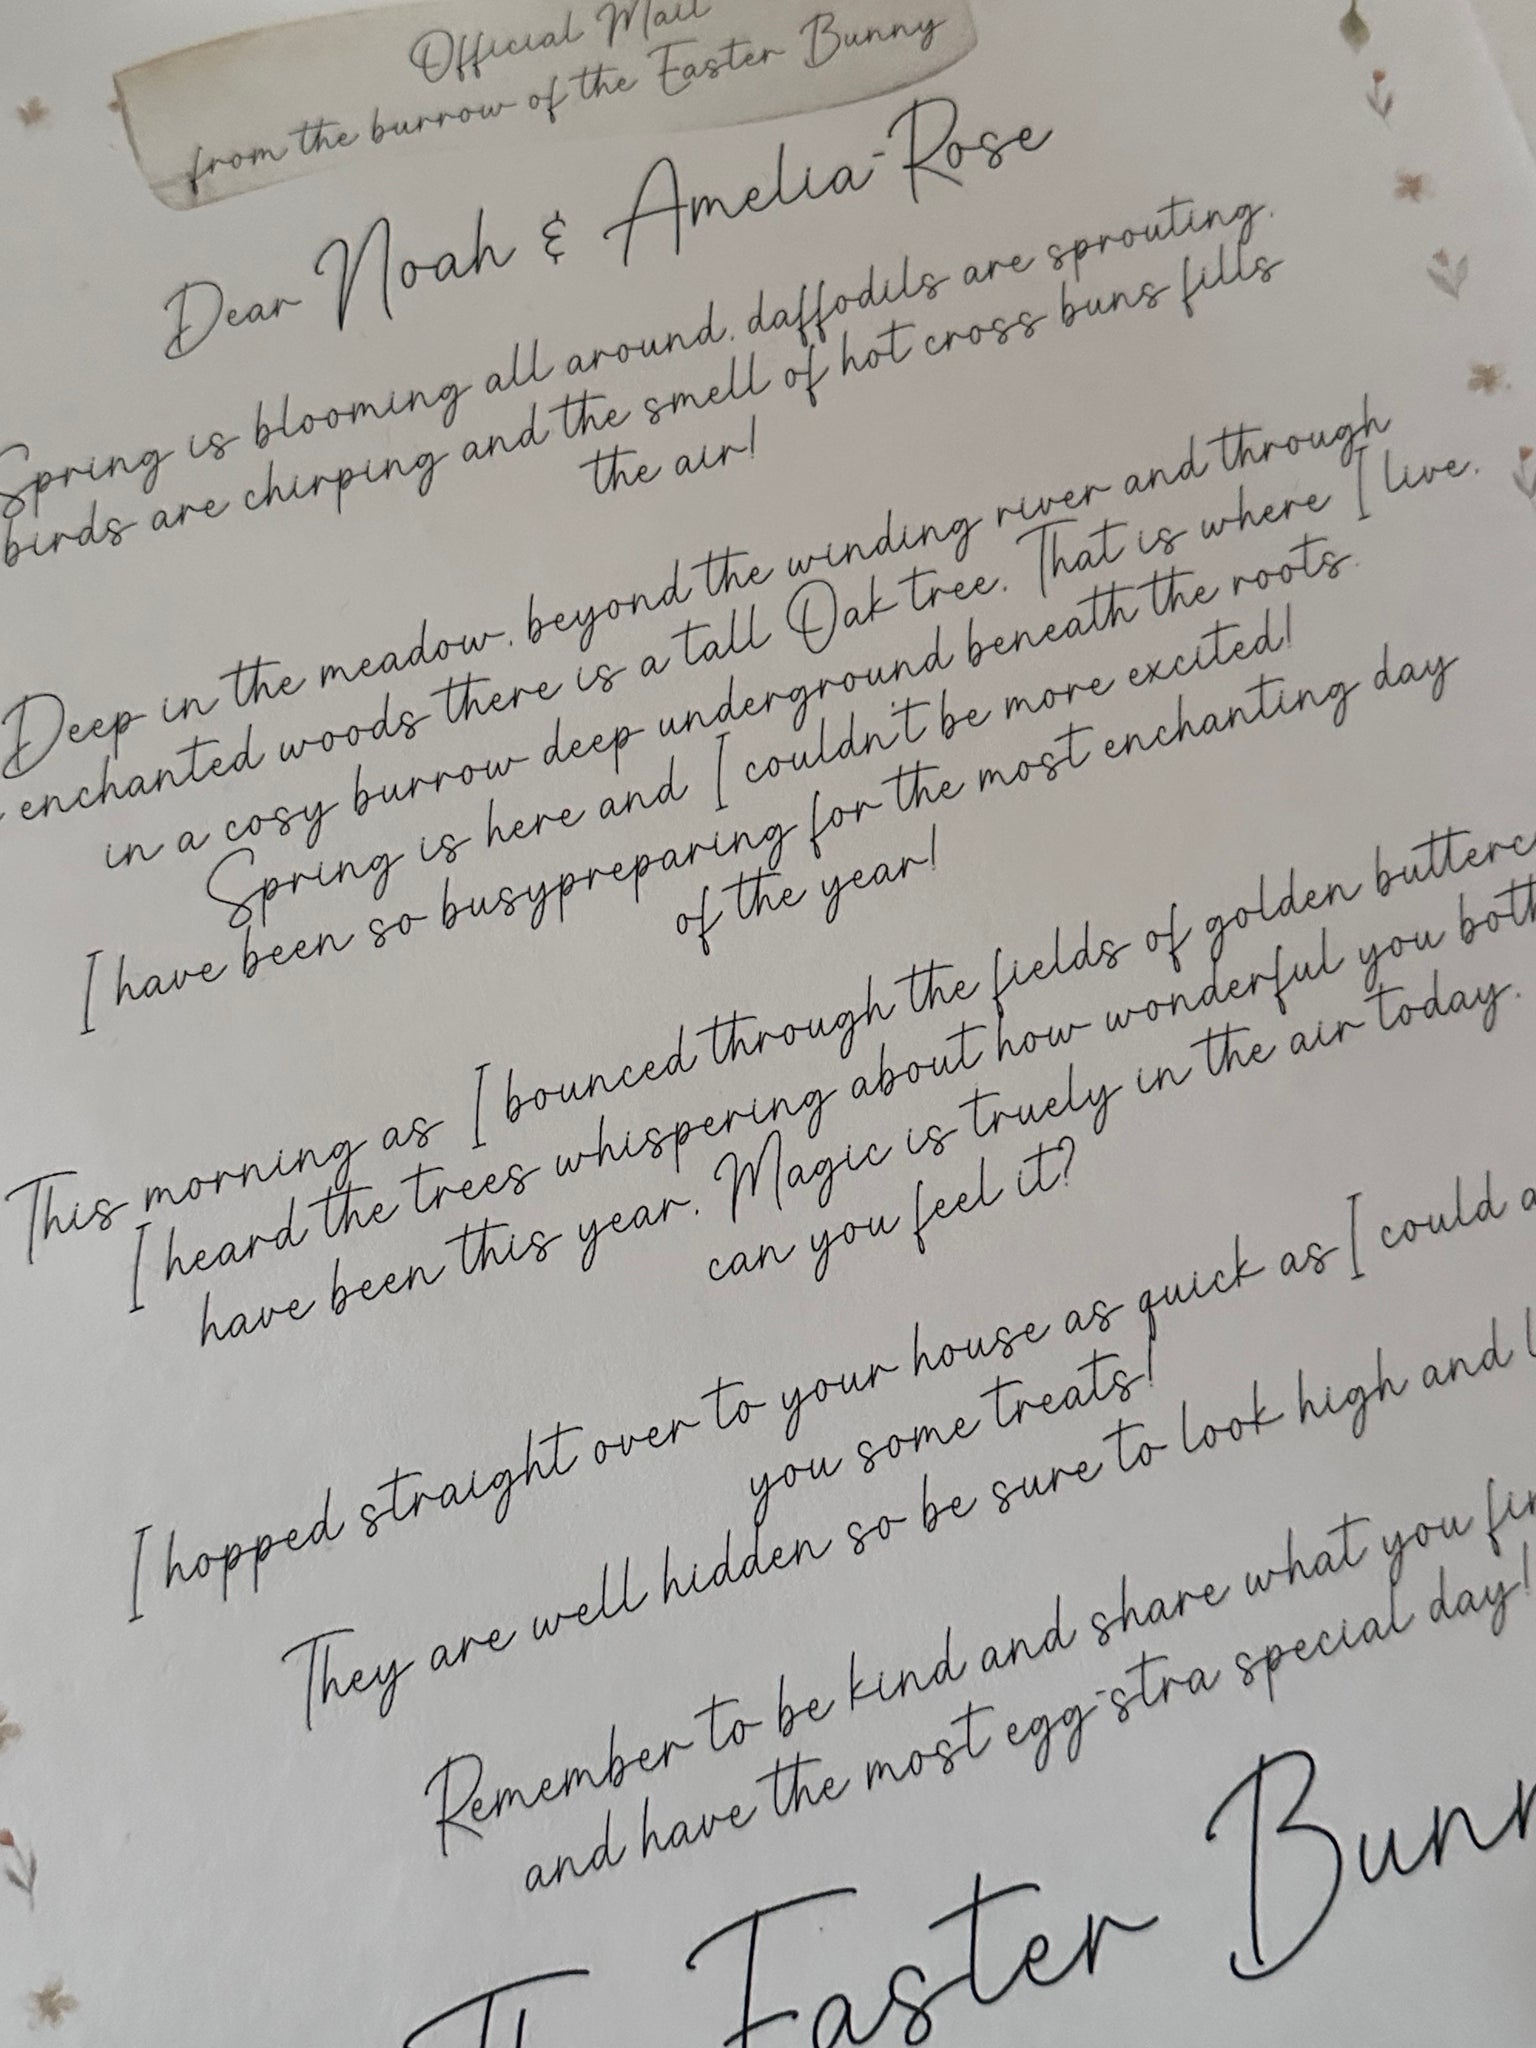 Official Mail
from the burrow of the Easter Bunny
Dear Noah & Amelia-Rose
Spring is blooming all around, daffodils are sprouting,
birds are chirping and the smell of hot cross buns fills
the air!
Deep in the meadow, beyond the winding river and through
enchanted woods there is a tall Oak tree. That is where I live,
in a cosy burrow deep underground beneath the roots.
Spring is here and I couldn't be more excited!
I have been so busypreparing for the most enchanting day
of the year!
This morning as I bounced through the fields of golden butterc
I heard the trees whispering about how wonderful you both
have been this year. Magic is truely in the air today,
can you feel it?
I hopped straight over to your house as quick as I could a
you some treats!
They are well hidden so be sure to look high and l
Remember to be kind and share what you fin
and have the most egg-stra special day!
Easter Bunn